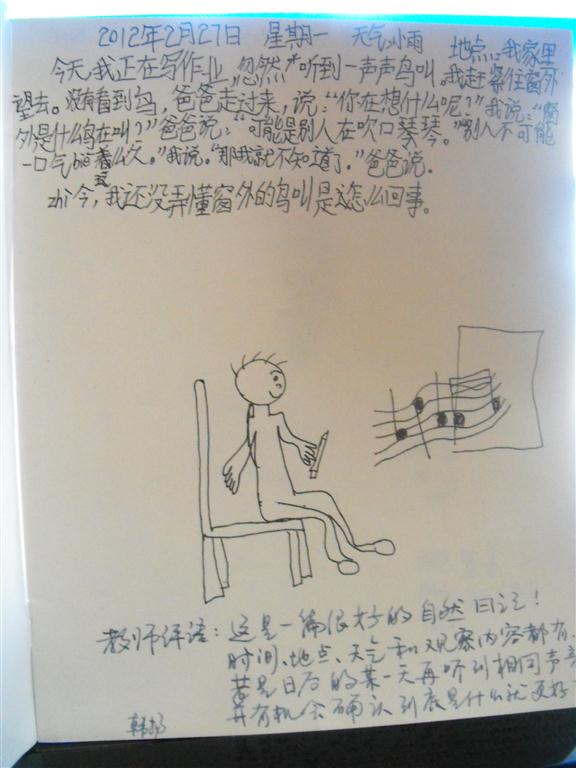 2012年2月27日 星期一 天气:小雨 地点:我家里
今天,我正在写作业,忽然听到一声声鸟叫。我赶紧往窗外
望去。没有看到鸟,爸爸走过来,说:"你在想什么呢?"我说:"窗
外是什么鸟在叫?"爸爸说:"可能是别人在吹口琴。""别人不可能
一口气biē着么久。"我说。"那我就不知道了。"爸爸说.
zhì今,我还没弄懂窗外的鸟叫是怎么回事。
教师评语:这是一篇很好的自然日记!
时间、地点、天气和观察内容都有.
若是日后的某一天再听到相同声音
并有机会确认到底是什么就更好
韩杨